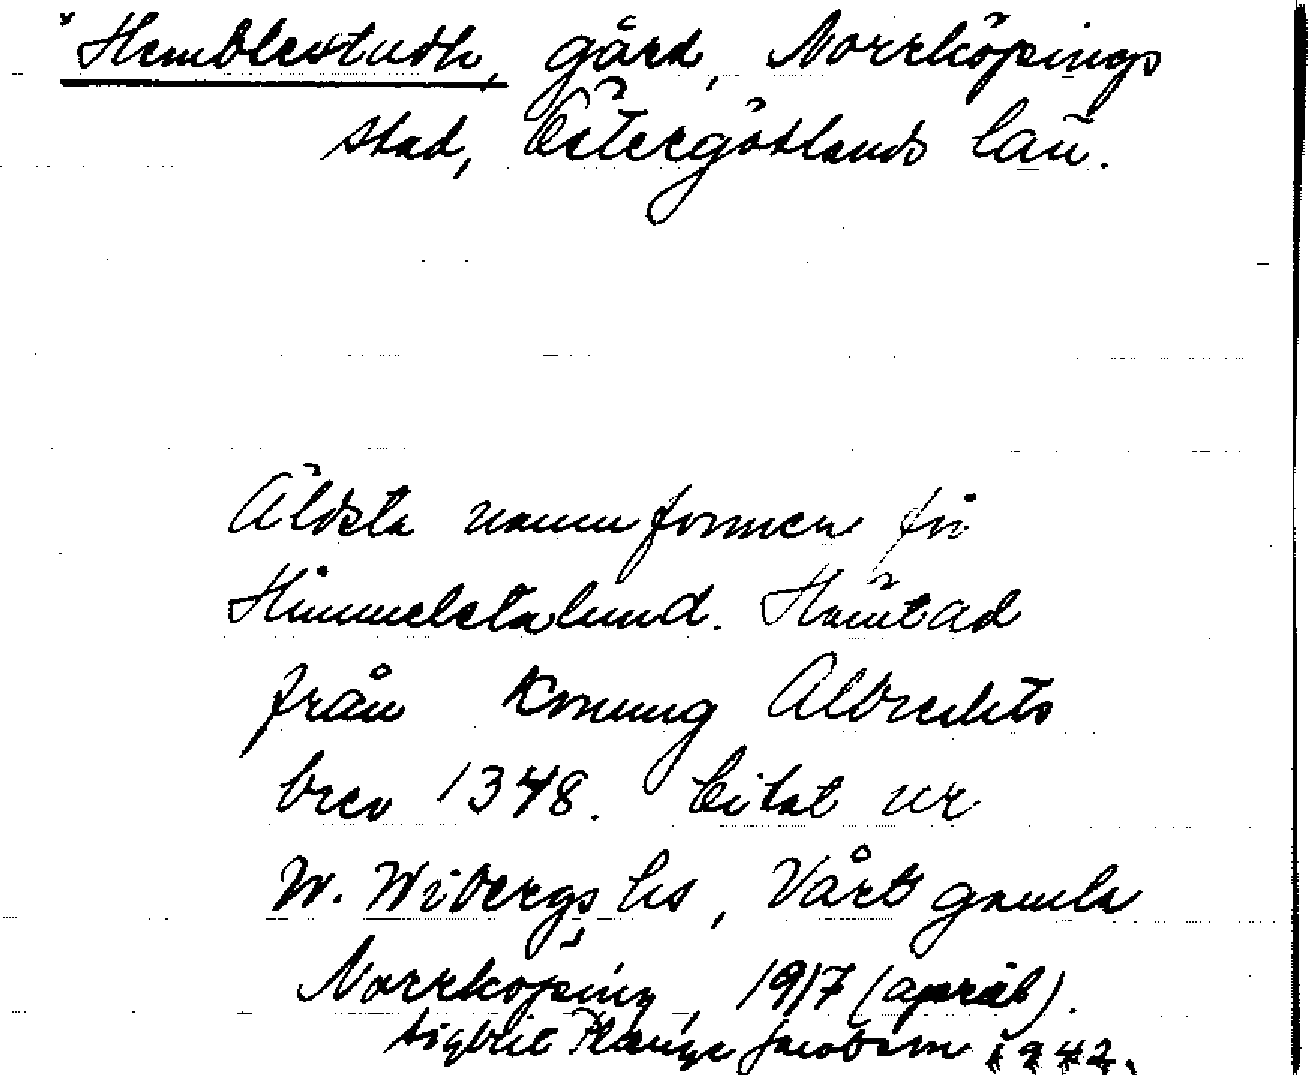 Hemblestadh, gård, Norrköpings
stad, Östergötlands län.
Äldsta namnformen för
Himmelstalund. Hämtad
från Konung Albrechts
brev 1348. Citat ur
W. Wibergs hs, Vårt gamla
Norrköping, 1917 (april).
Sigbrit Plænge Jacobson 1942.